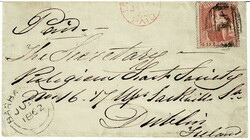 Paid
The Secretary
Religious Tract Society
16. 17 Upr Sackville St
Dublin
Ireland
PAID
1862